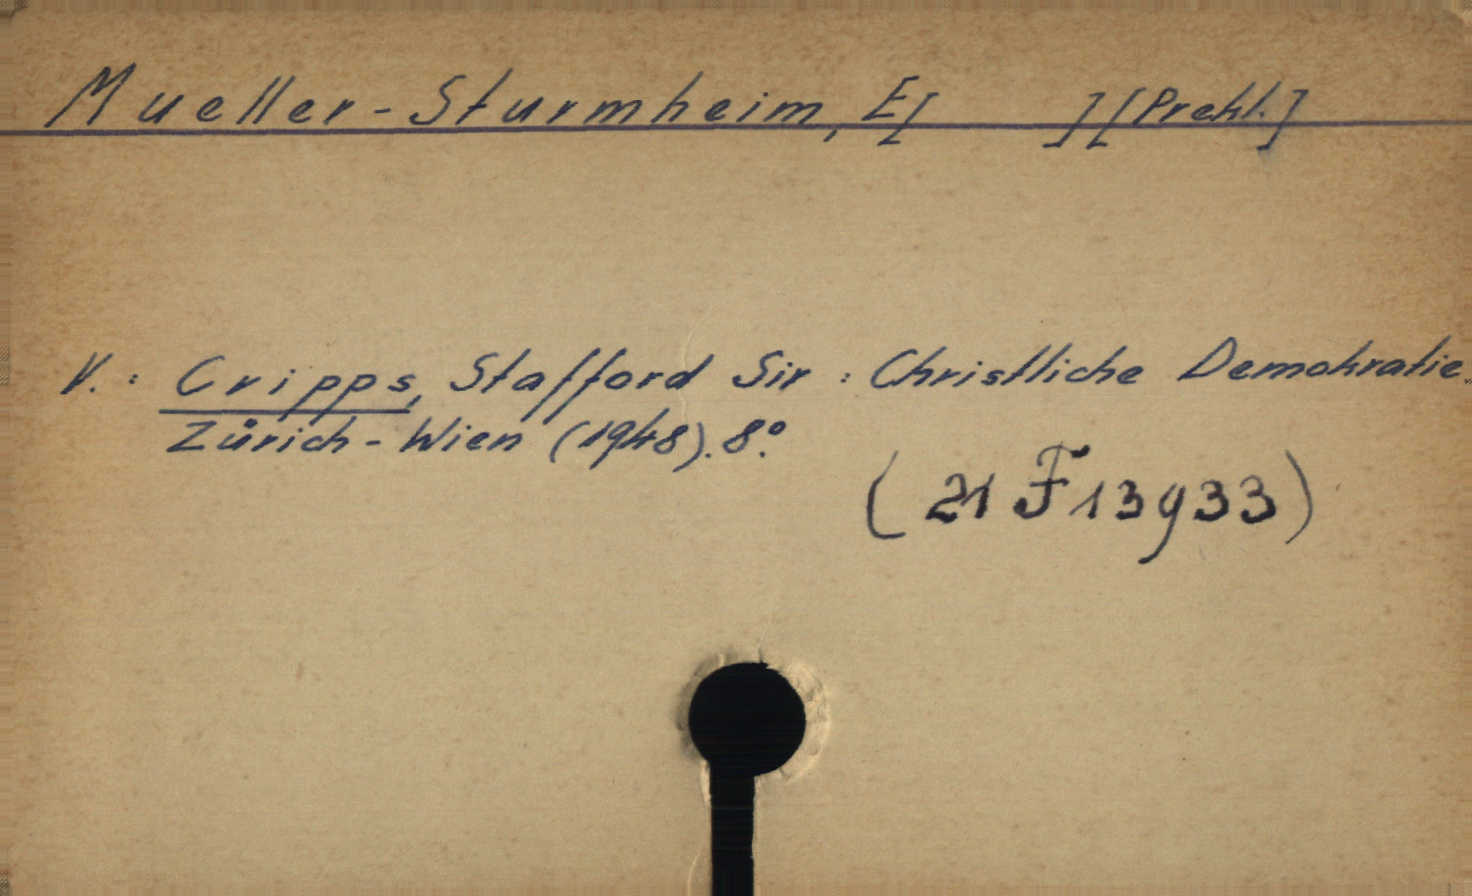 Mueller-Sturmheim, E[ ] [Prekl.]
V. : Cripps, Stafford Sir : Christliche Demokratie.
Zürich - Wien (1948). 8°.
(21 F 13933)